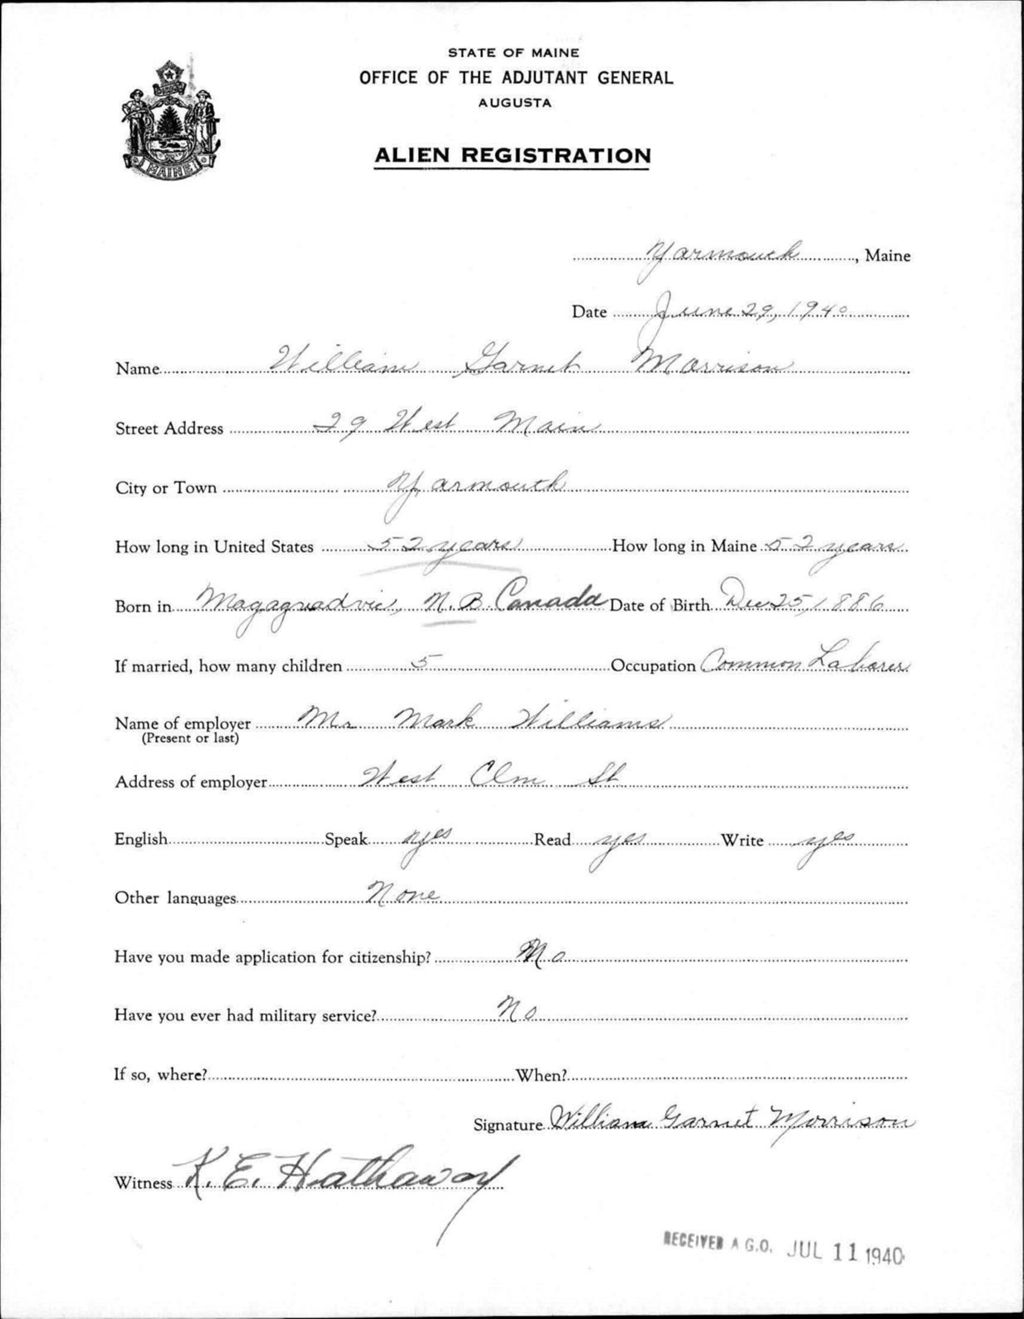 STATE OF MAINE
OFFICE OF THE ADJUTANT GENERAL
AUGUSTA
ALIEN REGISTRATION
MAINE
Yarmouth, Maine
Date June 29, 1940
Name William Garnet Morrison
Street Address 29 West Main
City or Town Yarmouth
How long in United States 52 years How long in Maine 52 years
Born in Magaguadvic, N.B. Canada Date of Birth Dec 25, 1886
If married, how many children 5 Occupation Common Laborer
Name of employer Mr Mark Williams
(Present or last)
Address of employer West Elm St
English Speak yes Read yes Write yes
Other languages None
Have you made application for citizenship? No
Have you ever had military service? No
If so, where? When?
Signature William Garnet Morrison
Witness K. E. Hathaway
RECEIVED A.G.O. JUL 11 1940